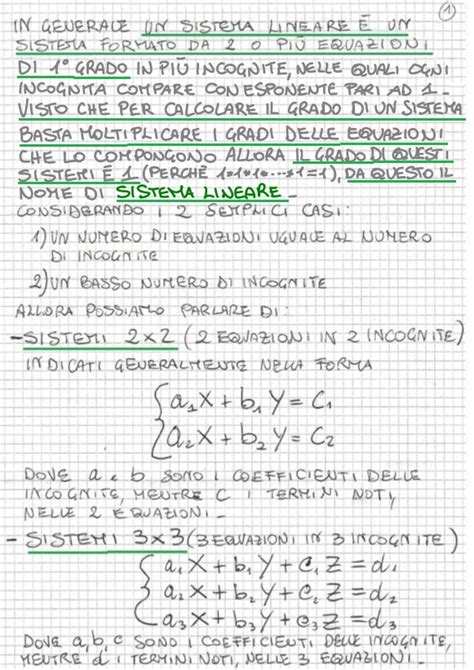 1)
IN GENERALE UN SISTEMA LINEARE È UN
SISTEMA FORMATO DA 2 O PIÙ EQUAZIONI
DI 1° GRADO IN PIÙ INCOGNITE, NELLE QUALI OGNI
INCOGNITA COMPARE CON ESPONENTE PARI AD 1_
VISTO CHE PER CALCOLARE IL GRADO DI UN SISTEMA
BASTA MOLTIPLICARE I GRADI DELLE EQUAZIONI
CHE LO COMPONGONO ALLORA IL GRADO DI QUESTI
SISTEMI È 1 (PERCHÈ 1*1*1*...*1=1), DA QUESTO IL
NOME DI SISTEMA LINEARE_
CONSIDERANDO I 2 SEMPLICI CASI:
1) UN NUMERO DI EQUAZIONI UGUALE AL NUMERO
DI INCOGNITE
2) UN BASSO NUMERO DI INCOGNITE
ALLORA POSSIAMO PARLARE DI:
- SISTEMI 2x2 (2 EQUAZIONI IN 2 INCOGNITE)
INDICATI GENERALMENTE NELLA FORMA
a₁X + b₁Y = C₁
a₂X + b₂Y = C₂
DOVE a e b SONO I COEFFICIENTI DELLE
INCOGNITE, MENTRE C I TERMINI NOTI,
NELLE 2 EQUAZIONI_
- SISTEMI 3x3 (3 EQUAZIONI IN 3 INCOGNITE)
a₁X + b₁Y + c₁Z = d₁
a₂X + b₂Y + c₂Z = d₂
a₃X + b₃Y + c₃Z = d₃
DOVE a, b, c SONO I COEFFICIENTI DELLE INCOGNITE,
MENTRE d I TERMINI NOTI, NELLE 3 EQUAZIONI_